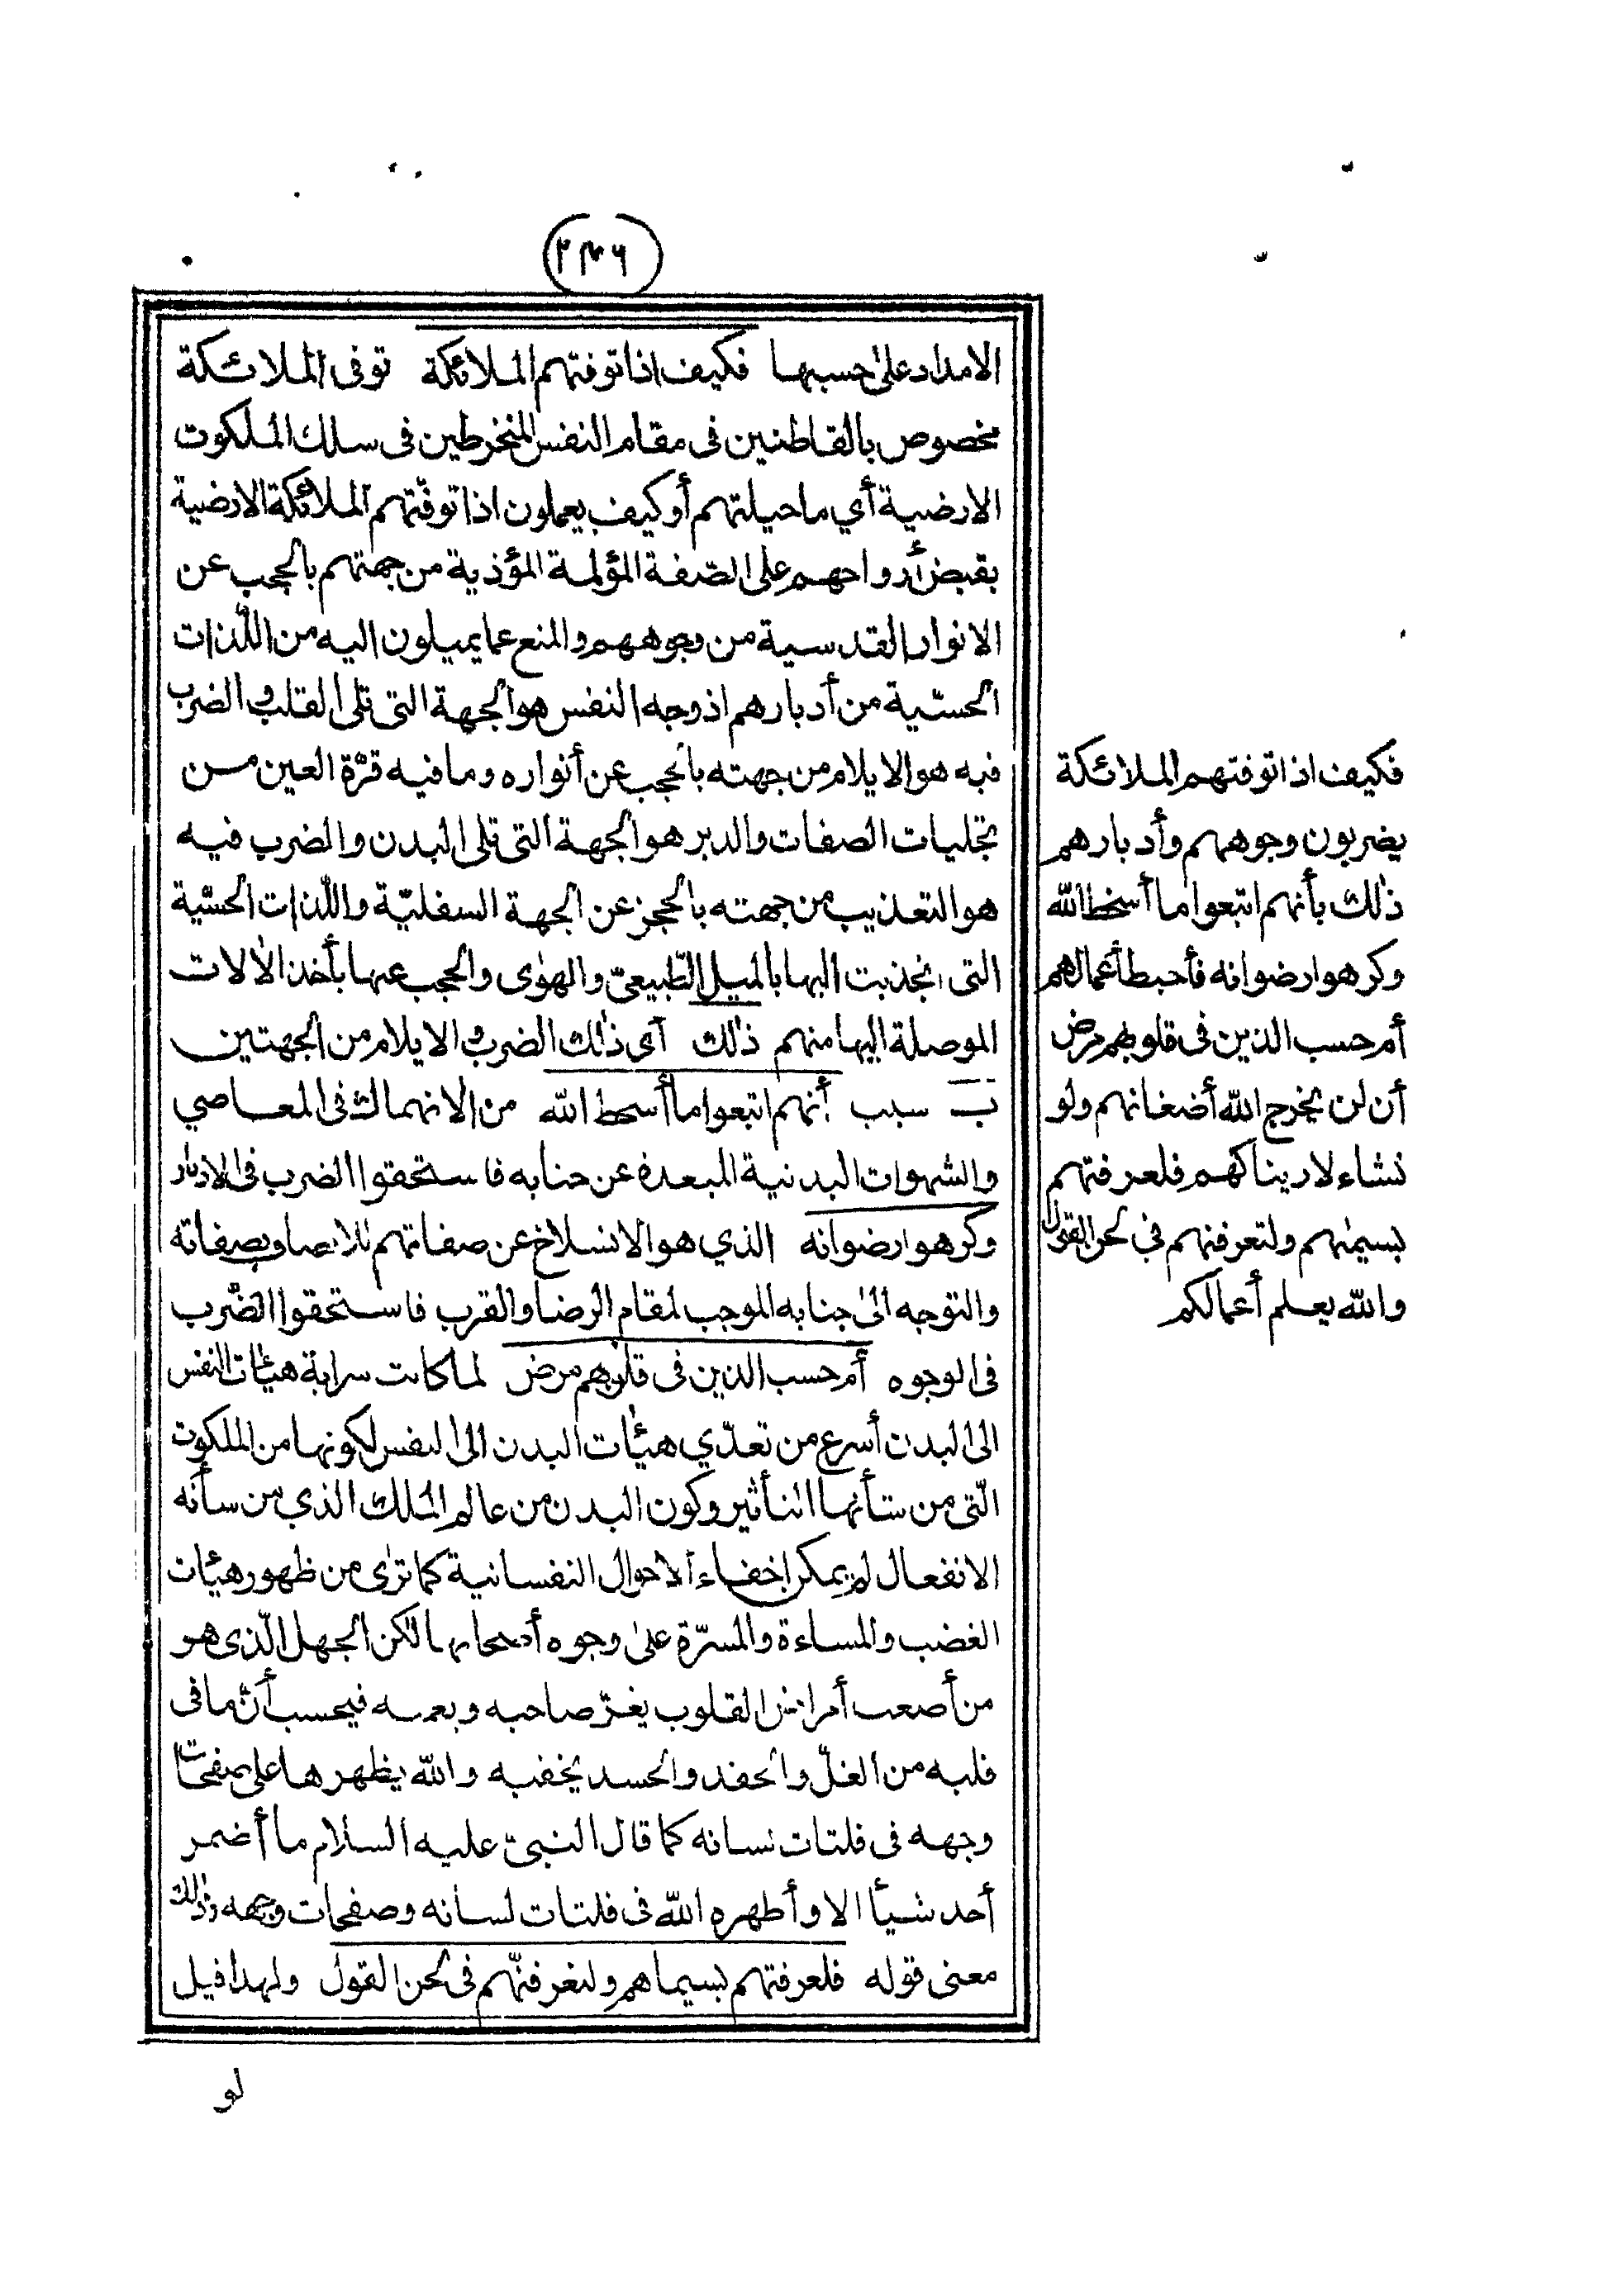 (٢٤٦)
الامداد على حسبها فكيف اذا توفتهم الملائكة توفى الملائكة
مخصوص بالقاطنين فى مقام النفس المنخرطين فى سلك الملكوت
الارضية أي ما حيلتهم أو كيف يعملون اذا توفّتهم الملائكة الارضية
بقبض أرواحهم على الصّفة المؤلمة المؤذية من جهتهم بالحجب عن
الانوار القدسية من وجوههم والمنع عما يميلون اليه من اللّذات
الحسّية من أدبارهم اذ وجه النفس هو الجهة التى تلى القلب والضرب
فيه هو الايلام من جهته بالحجب عن أنواره وما فيه قرّة العين من
تجليات الصفات والدبر هو الجهة التى تلى البدن والضرب فيه
هو التعذيب من جهته بالحجز عن الجهة السفليّة واللّذات الحسّية
التى انجذبت اليها بالميل الطّبيعىّ والهوٰى والحجب عنها بأخذ الآلات
الموصلة اليها منهم ذٰلك أى ذٰلك الضرب والايلام من الجهتين
بـ سبب أنهم اتبعوا ما أسخط الله من الانهماك فى المعاصي
والشهوات البدنية المبعدة عن جنابه فاستحقوا الضرب فى الادبار
وكرهوا رضوانه الذي هو الانسلاخ عن صفاتهم للاتصاف بصفاته
والتوجه الىٰ جنابه الموجب لمقام الرضا والقرب فاستحقوا الضّرب
فى الوجوه أم حسب الذين فى قلوبهم مرض لما كانت سراية هيئات النفس
الى البدن أسرع من تعدّي هيئات البدن الى النفس لكونها من الملكوت
الّتى من شأنها التأثير وكون البدن من عالم الملك الذي من شأنه
الانفعال لم يمكن اخفاء الاحوال النفسانية كما ترٰى من ظهور هيئات
الغضب والمساءة والمسرّة علىٰ وجوه أصحابها لٰكن الجهل الّذى هو
من أصعب أمراض القلوب يغرّ صاحبه ويعميه فيحسب أنّ ما فى
قلبه من الغلّ والحقد والحسد يخفيه والله يظهرها على صفحات
وجهه فى فلتات لسانه كما قال النبىّ عليه السلام ما أضمر
أحد شيأ الا وأظهره الله فى فلتات لسانه وصفحات وجهه وذٰلك
معنى قوله فلعرفتهم بسيماهم ولتعرفنّهم فى لحن القول ولهذا قيل
لو
فكيف اذا توفتهم الملائكة
يضربون وجوههم وأدبارهم
ذٰلك بأنهم اتبعوا ما أسخط الله
وكرهوا رضوانه فأحبط أعمالهم
أم حسب الذين فى قلوبهم مرض
أن لن يخرج الله أضغانهم ولو
نشاء لاريناكهم فلعرفتهم
بسيمٰهم ولتعرفنهم في لحن القول
والله يعلم أعمالكم